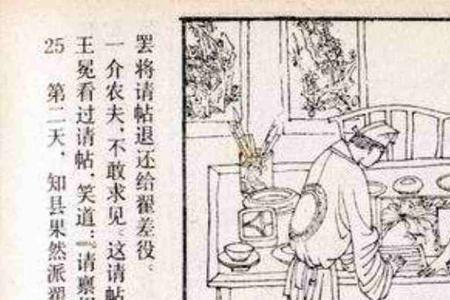 25 第二天，知县果然派翟
王冕看过请帖，笑道：“请禀
一介农夫，不敢求见。这请帖
罢将请帖退还给翟差役。